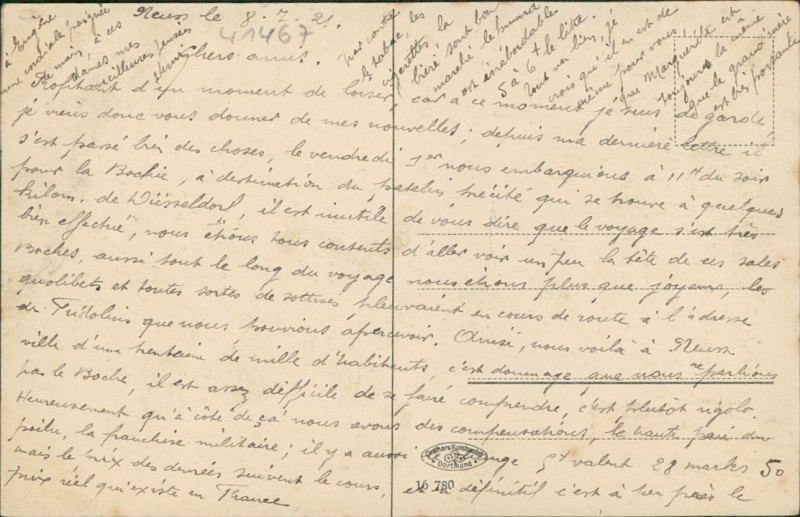 Neuss le 8.7.21.
41467
Chers amis.
Profitant d'un moment de loisir, car à ce moment je suis de garde
je viens donc vous donner de mes nouvelles; depuis ma dernière lettre il
s'est passé bien des choses, le vendredi 1er nous embarquions à 11h du soir
pour la Bochie, à destination du patelin précité qui se trouve à quelques
kilom. de Düsseldorf, il est inutile de vous dire que le voyage s'est très
bien effectué, nous étions tous contents d'aller voir un peu la tête de ces sales
Boches, aussi tout le long du voyage nous étions plus que joyeux, les
quolibets et toutes sortes de sottises pleuvaient en cours de route à l'adresse
de Fridolins que nous pouvions apercevoir. Ainsi, nous voilà à Neuss
ville d'une trentaine de mille d'habitants, c'est dommage que nous ne parlions
pas le Boche, il est assez difficile de se faire comprendre, c'est plutôt rigolo.
Heureusement qu'à côté de ça nous avons des compensations, la haute paie du
poilu, la franchise militaire; il y a aussi change valent 28 marks 50
mais le prix des denrées suivent le cours, et en définitif c'est à peu près le
prix réel qui existe en France,
par contre
le tabac, les
cigarettes la
bière sont bon
marché le pinard
est inabordable
5 à 6 + le litre.
Tout va bien, je
crois qu'il en est de
même pour vous
que Marguerite est
toujours la même
que la grand'mère
est bien portante
à Eugène
une cordiale poignée
de main, à ces
dames mes
meilleures pensées
Henri
Dortmund
16 780